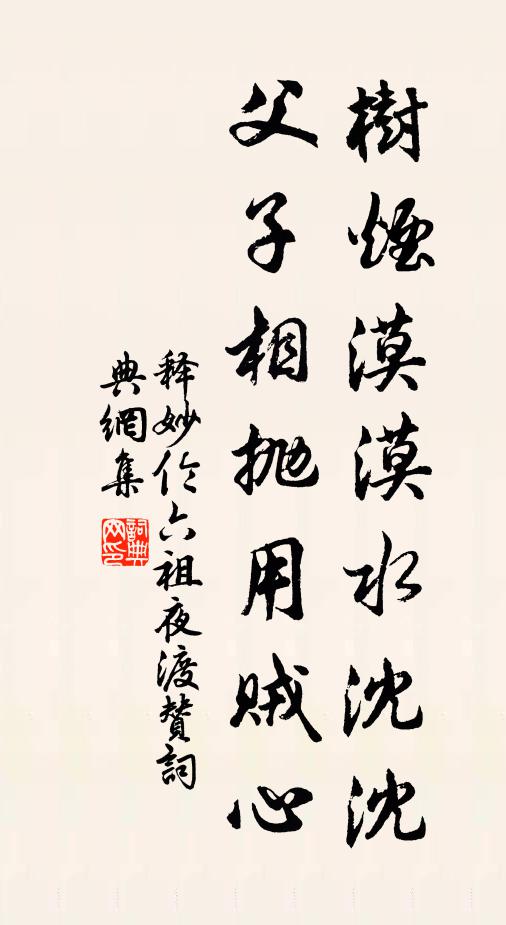 樹煙漠漠水沈沈
父子相抛用賊心
释妙伦六祖夜渡赞詞
典網集
詞典网印